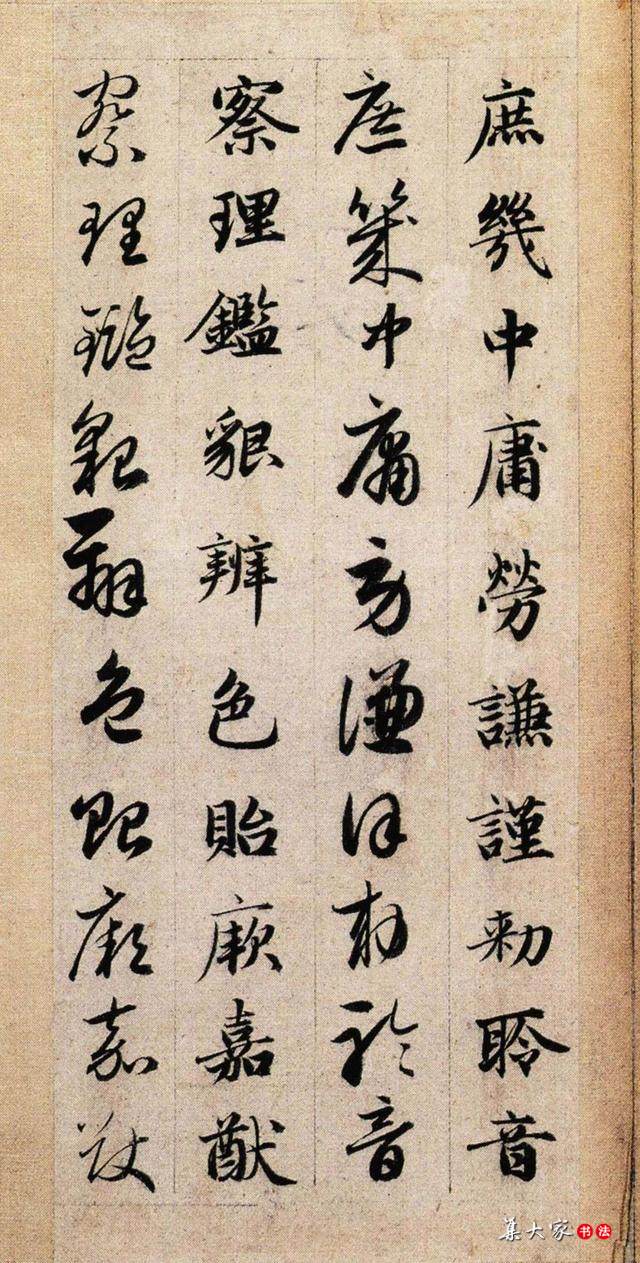 庶幾中庸勞謙謹勑聆音
庶幾中庸勞謙謹勑聆音
察理鑑貌辨色貽厥嘉猷
察理鑑貌辨色貽厥嘉猷
集大家书法